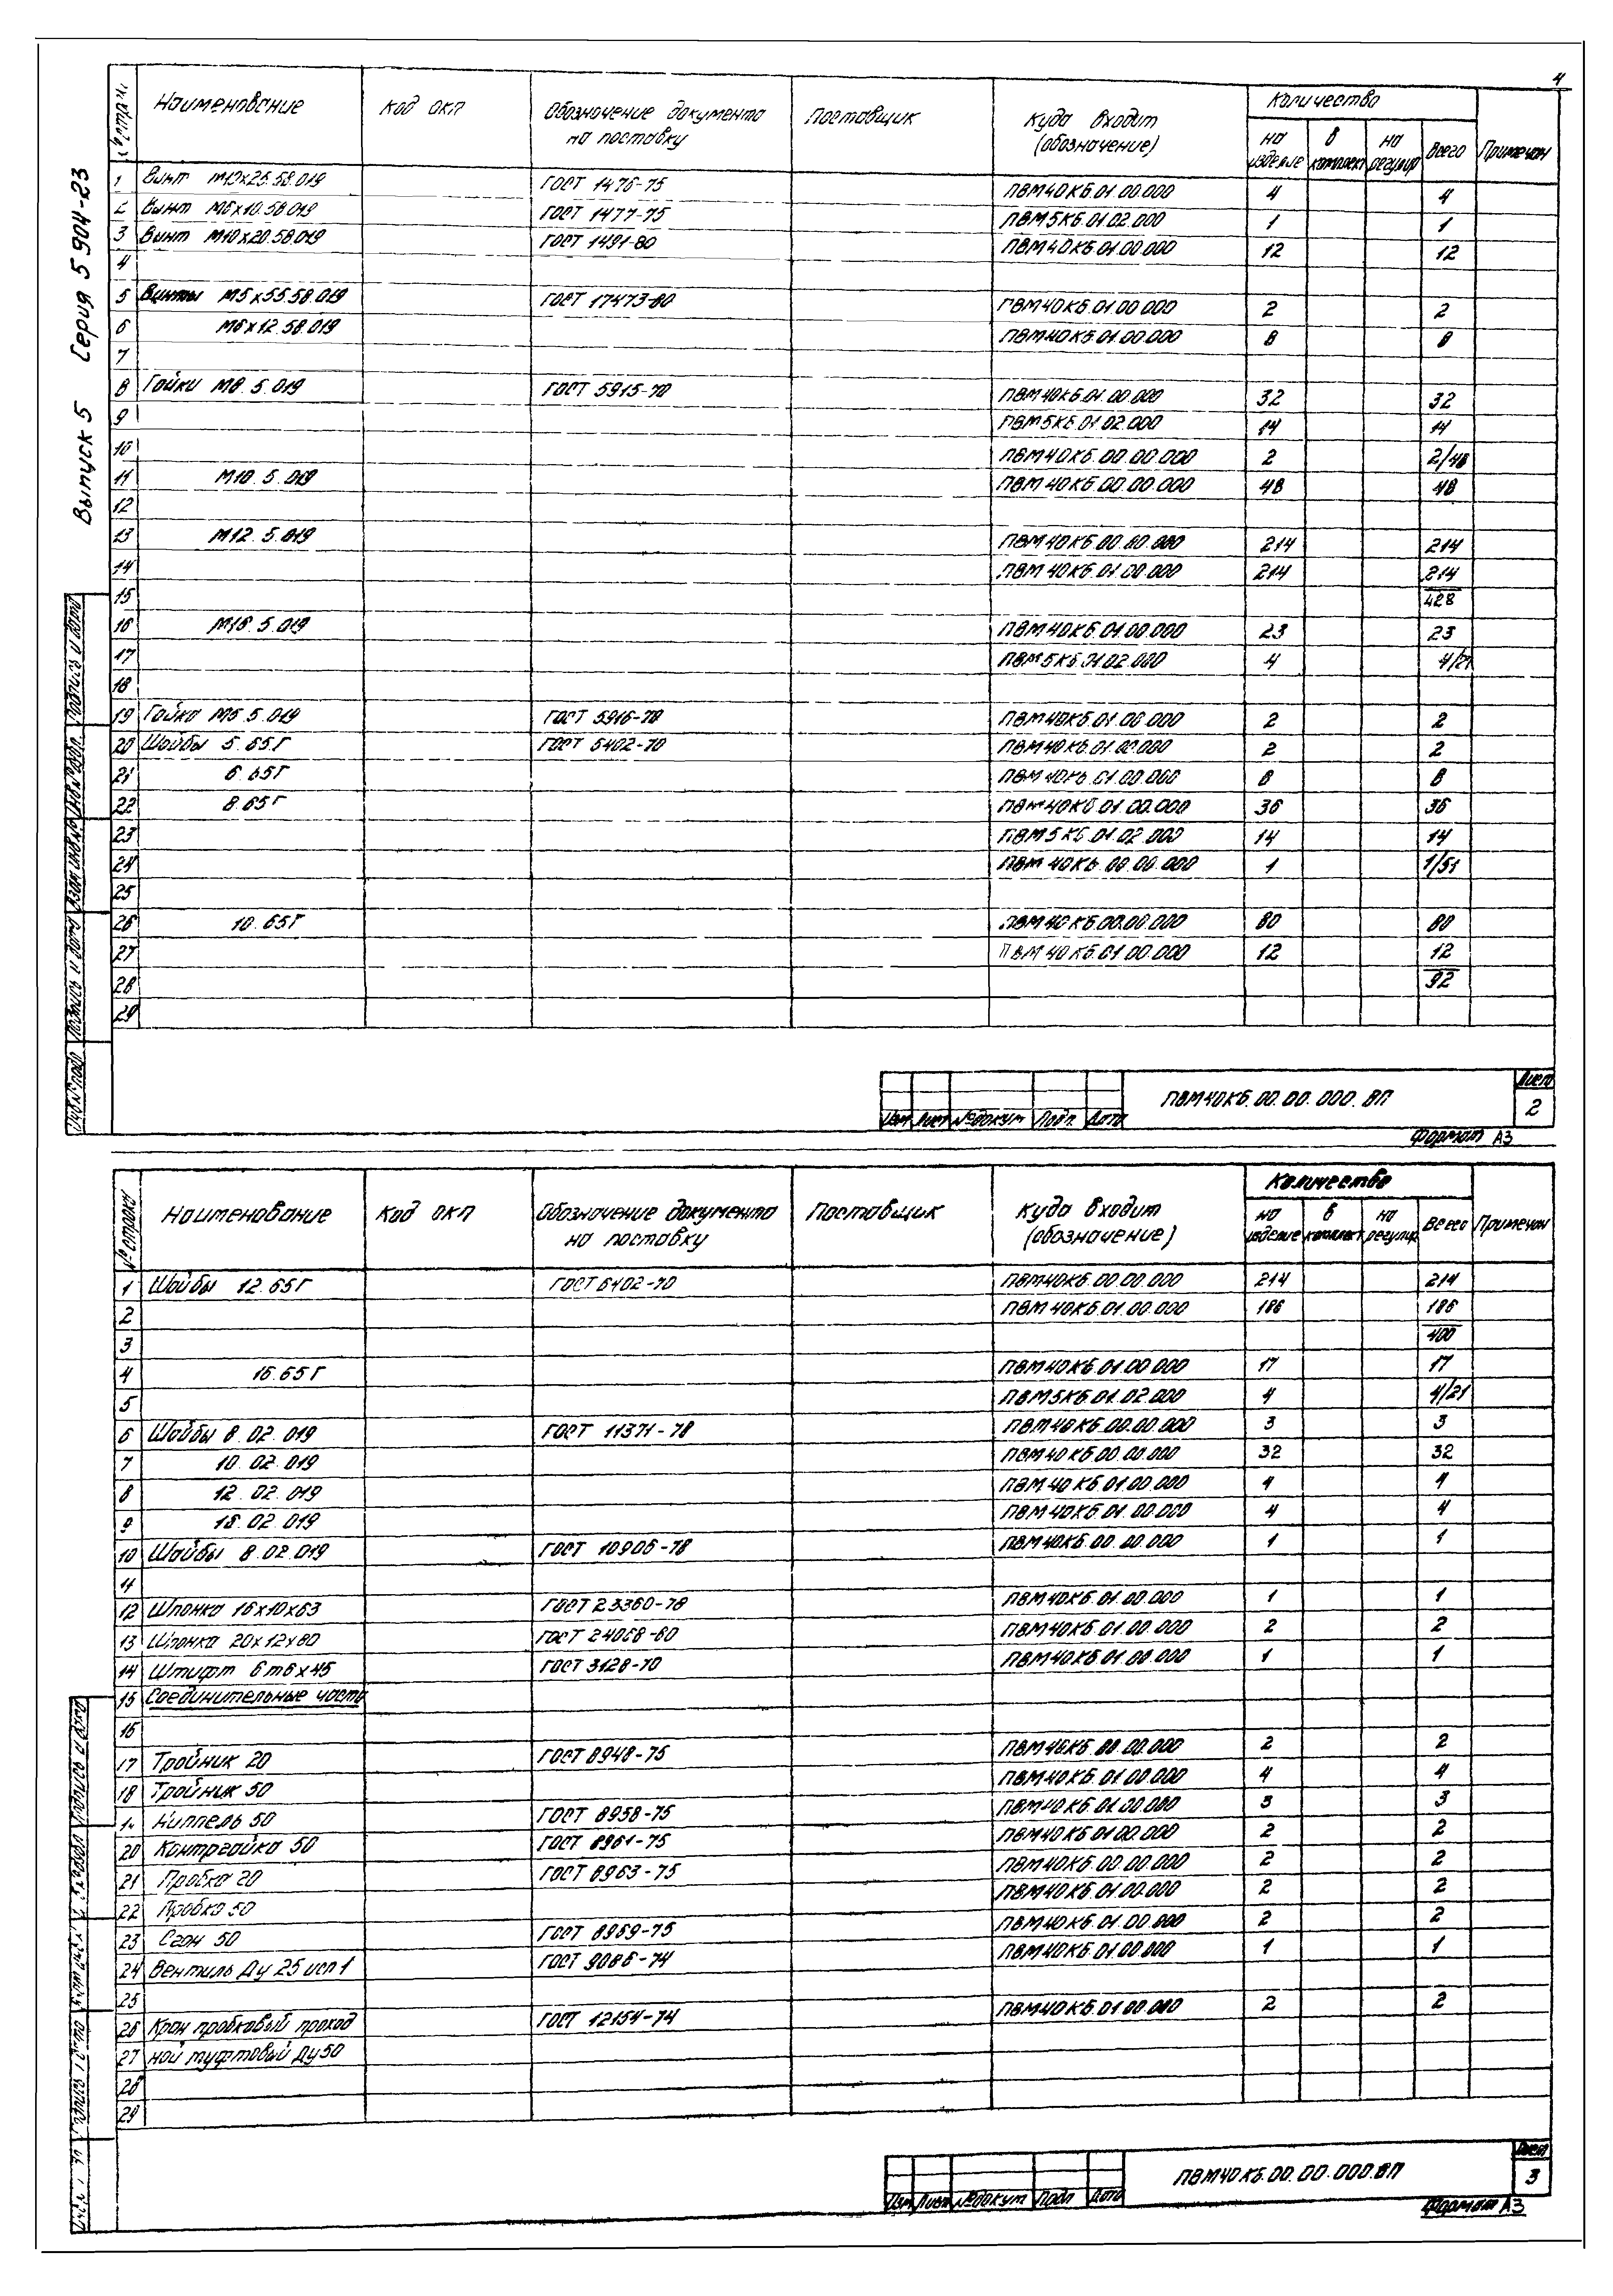 4
Серия 5 904-23
Выпуск 5
Наименование Код ОКП Обозначение документа на поставку Поставщик Куда входит (обозначение) Количество на изделие в комплект на регулир Всего Примечан
1 Винт ГОСТ 1476-75 ПВМ40КБ.01.00.000 4 4
2 Винт М6х10.58.019 ГОСТ 1477-75 ПВМ5КБ.01.02.000 1 1
3 Винт М10х20.58.019 ГОСТ 1491-80 ПВМ40КБ.01.00.000 12 12
4
5 Винты М5х55.58.019 ГОСТ 17473-80 ПВМ40КБ.01.00.000 2 2
6 М6х12.58.019 ПВМ40КБ.01.00.000 8 8
7
8 Гайки М8.5.019 ГОСТ 5915-70 ПВМ40КБ.01.00.000 32 32
9 ПВМ5КБ.01.02.000 14 14
10 ПВМ40КБ.00.00.000 2 2/48
11 М10.5.019 ПВМ40КБ.00.00.000 48 48
12
13 М12.5.019 ПВМ40КБ.00.00.000 214 214
14 ПВМ40КБ.01.00.000 214 214
15 428
16 М16.5.019 ПВМ40КБ.01.00.000 23 23
17 ПВМ5КБ.01.02.000 4
18
19 Гайка М5.5.019 ГОСТ 5916-70 ПВМ40КБ.01.00.000 2 2
20 Шайбы 5.65Г ГОСТ 6402-70 ПВМ40КБ.01.00.000 2 2
21 6.65Г ПВМ40КБ.01.00.000 8 8
22 8.65Г ПВМ40КБ.01.00.000 36 36
23 ПВМ5КБ.01.02.000 14 14
24 ПВМ40КБ.00.00.000 1 1/51
25
26 10.65Г ПВМ40КБ.00.00.000 80 80
27 ПВМ40КБ.01.00.000 12 12
28 92
29
Изм Лист №докум Подп. Дата ПВМ40КБ.00.00.000.ВП Лист 2
Формат А3
№ строки Наименование Код ОКП Обозначение документа на поставку Поставщик Куда входит (обозначение) Количество на изделие в комплект на регулир Всего Примечан
1 Шайбы 12.65Г ГОСТ 6402-70 ПВМ40КБ.00.00.000 214 214
2 ПВМ40КБ.01.00.000 186 186
3 400
4 16.65Г ПВМ40КБ.01.00.000 17 17
5 ПВМ5КБ.01.02.000 4 4/21
6 Шайбы 8.02.019 ГОСТ 11371-78 ПВМ40КБ.00.00.000 3 3
7 10.02.019 ПВМ40КБ.00.00.000 32 32
8 12.02.019 ПВМ40КБ.01.00.000 4 4
9 16.02.019 ПВМ40КБ.01.00.000 4 4
10 Шайбы 8.02.019 ГОСТ 10906-78 ПВМ40КБ.00.00.000 1 1
11
12 Шпонка 16х10х63 ГОСТ 23360-78 ПВМ40КБ.01.00.000 1 1
13 Шпонка 20х12х80 ГОСТ 24068-80 ПВМ40КБ.01.00.000 2 2
14 Штифт 6m6х45 ГОСТ 3128-70 ПВМ40КБ.01.00.000 1 1
15 Соединительные части
16
17 Тройник 20 ГОСТ 8948-75 ПВМ40КБ.00.00.000 2 2
18 Тройник 50 ПВМ40КБ.01.00.000 4 4
Ниппель 50 ГОСТ 8958-75 ПВМ40КБ.01.00.000 3 3
20 Контргайка 50 ГОСТ 8961-75 ПВМ40КБ.01.00.000 2 2
21 Пробка 20 ГОСТ 8963-75 ПВМ40КБ.00.00.000 2 2
22 Пробка 50 ПВМ40КБ.01.00.000 2 2
23 Сгон 50 ГОСТ 8969-75 ПВМ40КБ.01.00.000 2 2
24 Вентиль Ду 25 исп 1 ГОСТ 9086-74 ПВМ40КБ.01.00.000 1 1
25
26 Кран пробковый проход ГОСТ 12154-74 ПВМ40КБ.01.00.000 2 2
27 ной муфтовый Ду50
28
29
Изм Лист №докум Подп Дата ПВМ40КБ.00.00.000.ВП Лист 3
Формат А3